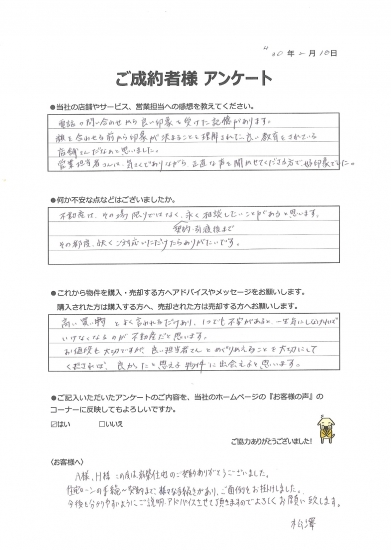 H30年2月18日
ご成約者様 アンケート
●当社の店舗やサービス、営業担当への感想を教えてください。
電話の問い合わせから良い印象を受けた記憶があります。
顔を合わせる前から印象が決まることを理解された良い教育をされている
店舗さんだなあと思いました。
営業担当者さんは、気さくでありながら正直な声を聞かせてくださる方で好印象でした。
●何か不安な点などはございましたか。
不動産は、その場限りではなく、永く相談したいことがあると思います。
契約・引渡後まで
その都度、快くご対応いただけたらありがたいです。
●これから物件を購入・売却する方へアドバイスやメッセージをお願いします。
購入された方は購入する方へ、売却された方は売却する方へお願いします。
高い買い物とよく言われるだけあり、1つでも不安があると、一生気にしなければ
いけなくなるのが不動産だと思います。
お値段も大切ですが、良い担当者さんとめぐりあえることを大切にして
くだされば、良かったと思える物件に出会えると思います。
●ご記入いただいたアンケートのご内容を、当社のホームページの『お客様の声』の
コーナーに反映してもよろしいですか。
☑はい □いいえ
ご協力ありがとうございました!
〈お客様へ〉
A様、H様 この度は新築住宅のご契約ありがとうございました。
住宅ローンの手続~契約まで、様々な手続きがあり、ご面倒をお掛けしました。
今後も分かりやすいようにご説明・アドバイスさせて頂きますのでよろしくお願い致します。
松澤